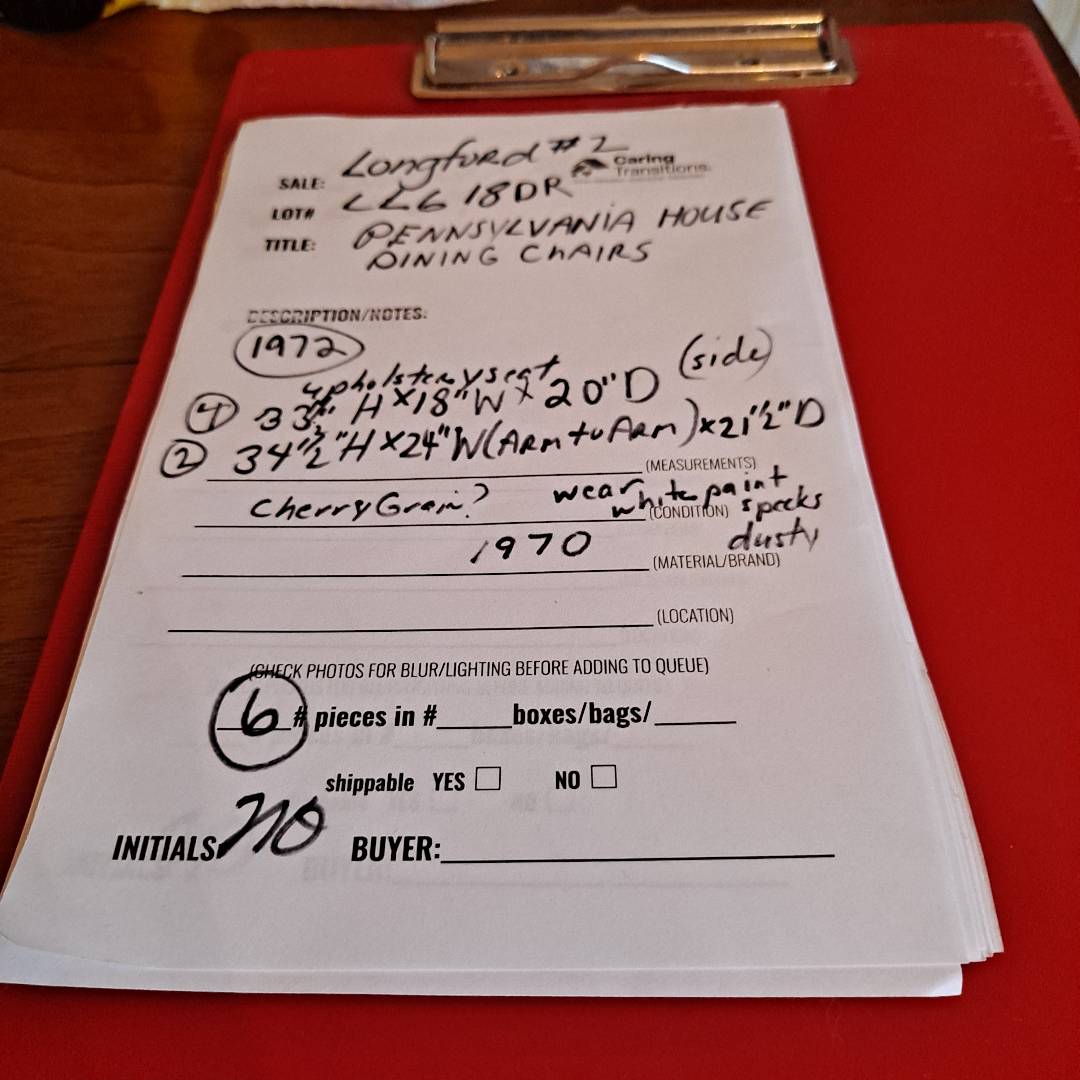 SALE: Longford #2
Caring Transitions
LOT# LL6 18DR
TITLE: PENNSYLVANIA HOUSE
DINING CHAIRS
DESCRIPTION/NOTES:
1972
upholstery seat (side)
4 33" H X 18" W X 20" D
2 34 1/2" H X 24" W (Arm to Arm) X 21 1/2" D
(MEASUREMENTS)
Cherry Grain? wear white paint specks
(CONDITION)
dusty
1970
(MATERIAL/BRAND)
(LOCATION)
(CHECK PHOTOS FOR BLUR/LIGHTING BEFORE ADDING TO QUEUE)
6 # pieces in #______boxes/bags/______
shippable YES □ NO □
INITIALS: no BUYER: